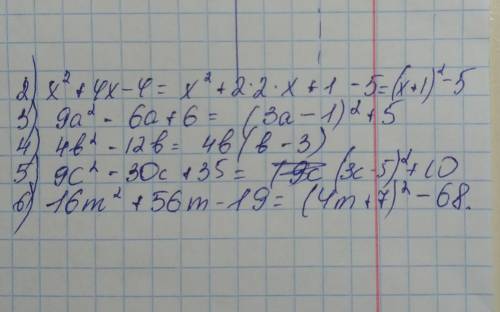 2) x² + 4x - 4 = x² + 2·2·x + 1 - 5 = (x+1)² - 5
3) 9a² - 6a + 6 = (3a - 1)² + 5
4) 4b² - 12b = 4b(b - 3)
5) 9c² - 30c + 35 = (3c - 5)² + 10
6) 16m² + 56m - 19 = (4m + 7)² - 68.